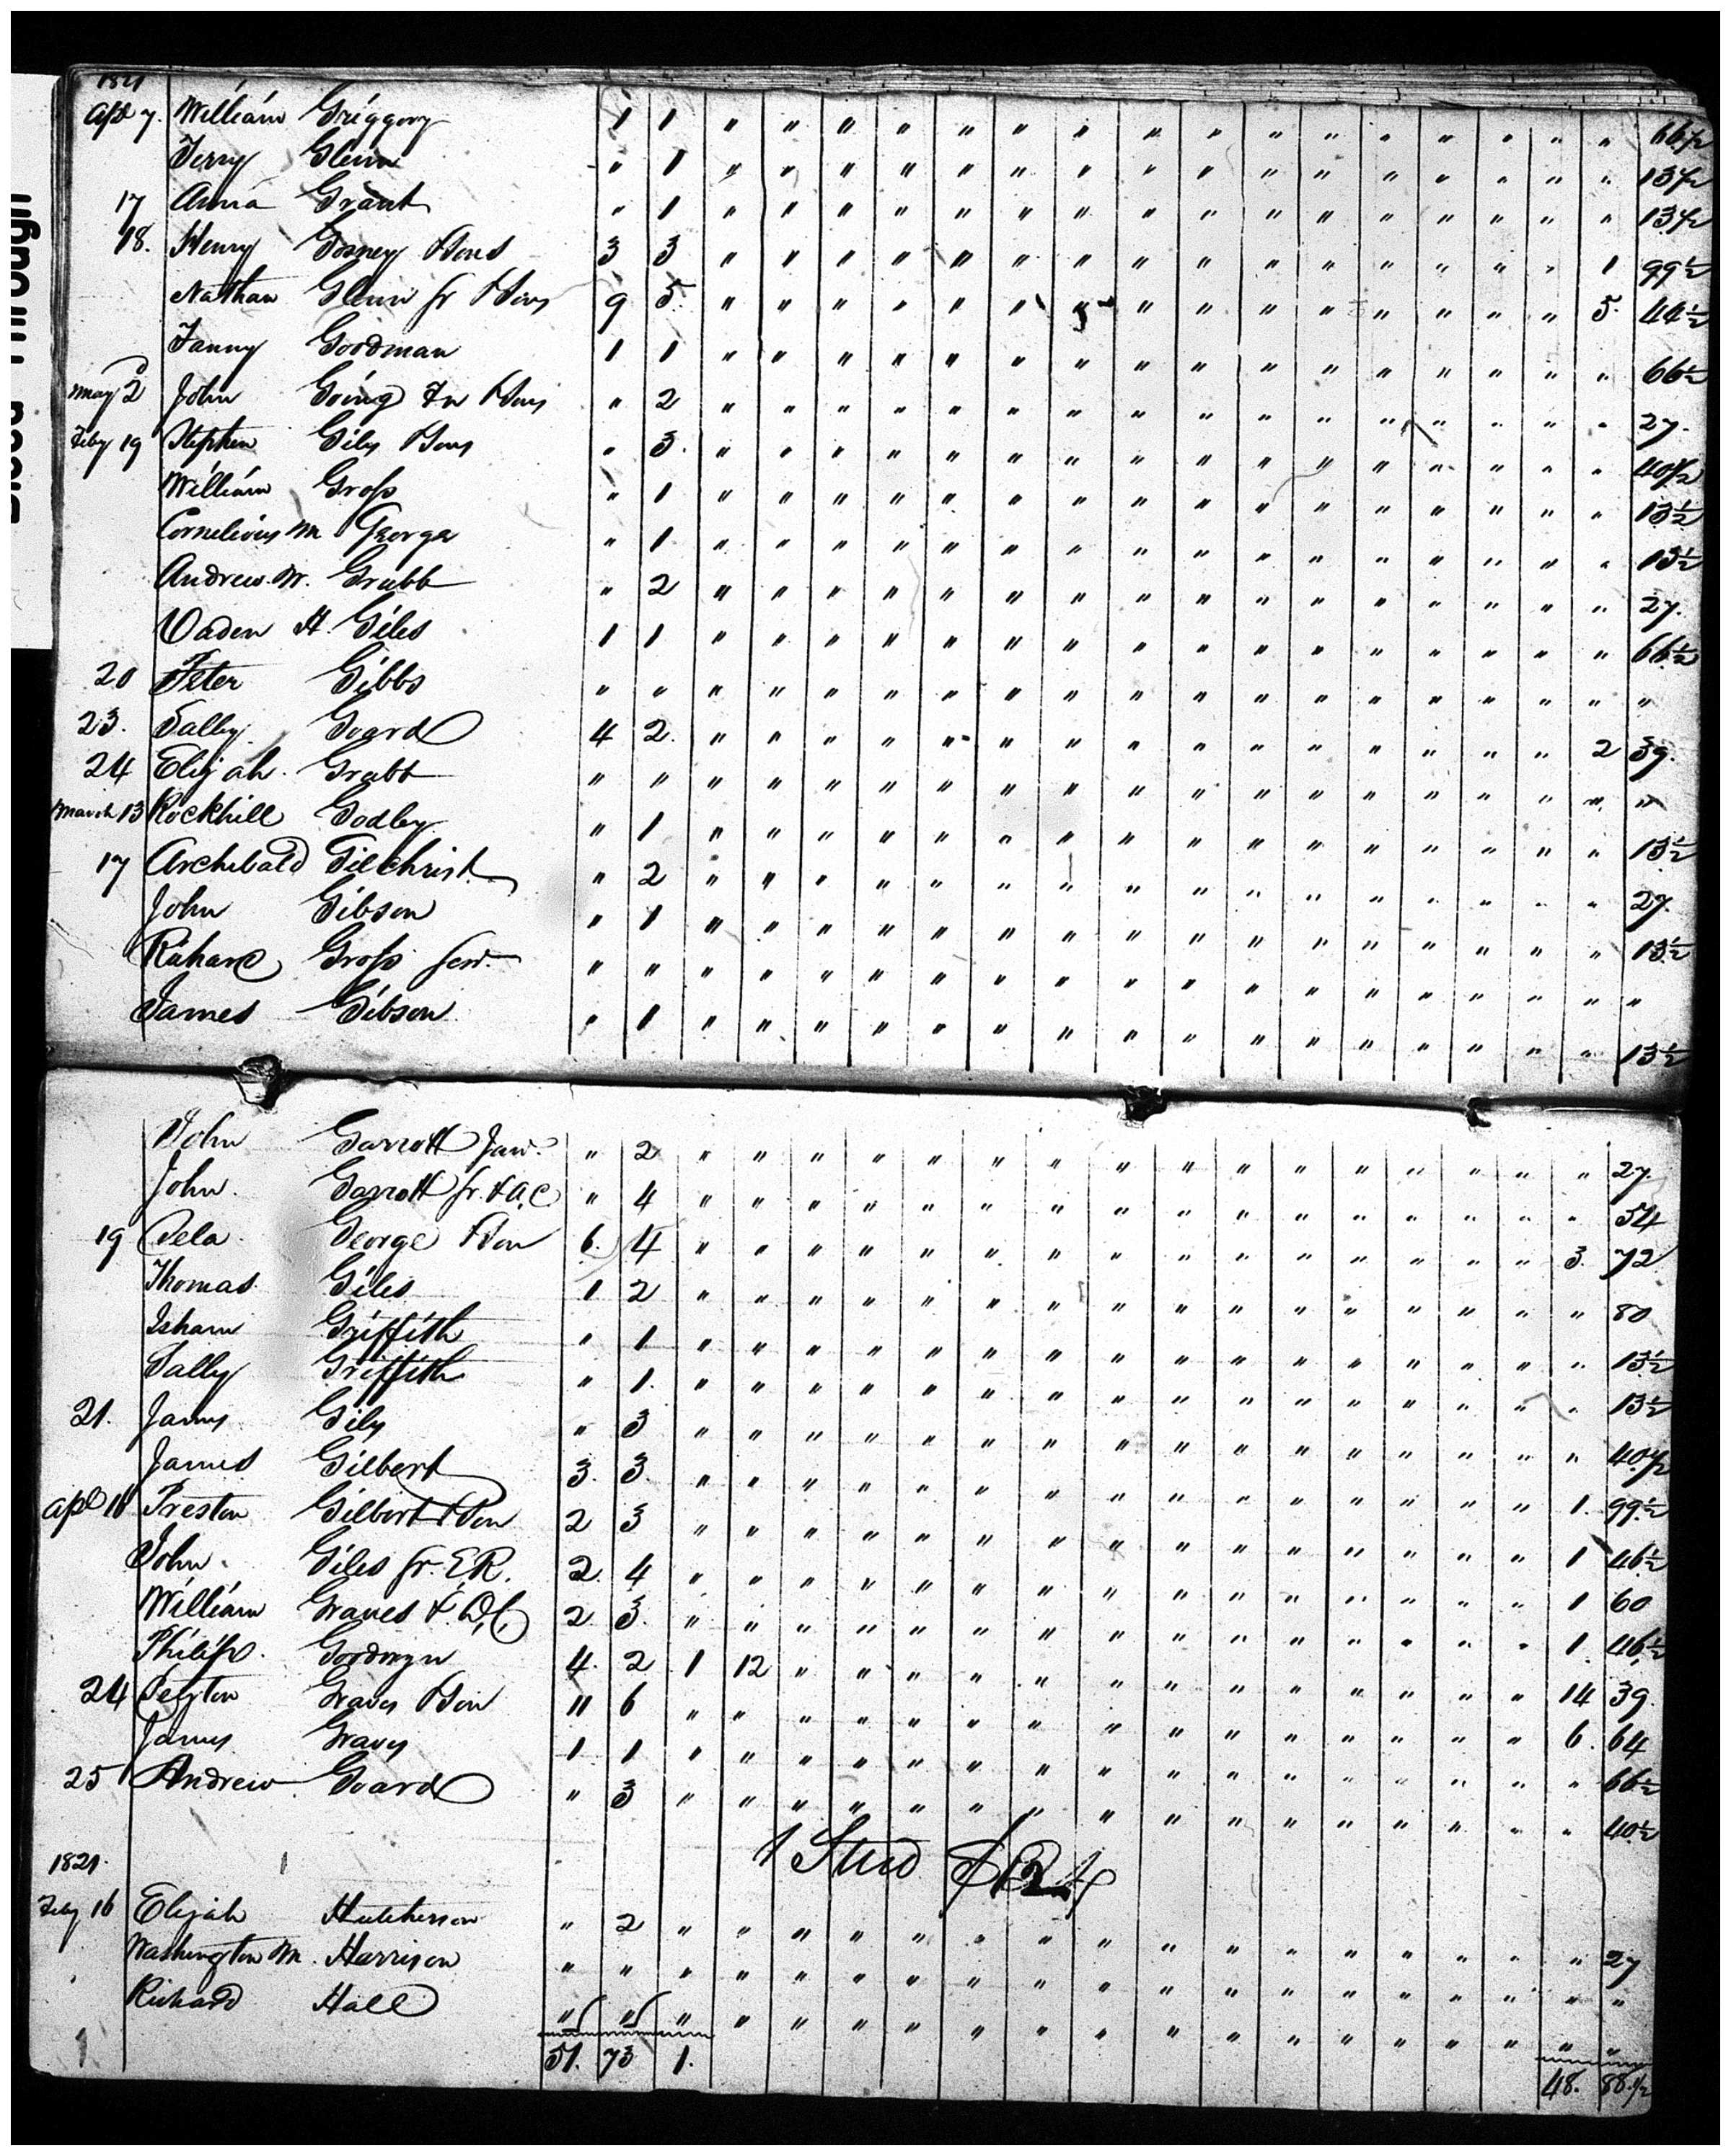 1821
Apl 7. William Griggory 1 1 " " " " " " " " " " " " " " " " 66 1/2
Terry Glenn " 1 " " " " " " " " " " " " " " " " 13 1/2
17 Anna Grant " 1 " " " " " " " " " " " " " " " " 13 1/2
18. Henry Gosney & Sons 3 3 " " " " " " " " " " " " " " " 1 99 1/2
Nathan Glenn Sr & Sons 9 5 " " " " " " " " " " " " " " " 5. 44 1/2
Fanny Goodman 1 1 " " " " " " " " " " " " " " " " 66 1/2
May 2 John Going & Sons " 2 " " " " " " " " " " " " " " " " 27.
Feby 19 Stephen Giles & Sons " 3. " " " " " " " " " " " " " " " " 40 1/2
William Gross " 1 " " " " " " " " " " " " " " " " 13 1/2
Cornelious M George " 1 " " " " " " " " " " " " " " " " 13 1/2
Andrew W. Grubb " 2 " " " " " " " " " " " " " " " " 27.
Vaden H. Giles 1 1 " " " " " " " " " " " " " " " " 66 1/2
20 Peter Gibbs " " " " " " " " " " " " " " " " " " "
23. Sally Goard 4 2. " " " " " " " " " " " " " " " 2 39.
24 Elijah Grubb " " " " " " " " " " " " " " " " " " "
March 13 Rockhill Godley " 1 " " " " " " " " " " " " " " " " 13 1/2
17 Archibald Gilchrist " 2 " " " " " " " " " " " " " " " " 27.
John Gibson " 1 " " " " " " " " " " " " " " " " 13 1/2
Richard Gross Senr. " " " " " " " " " " " " " " " " " " "
James Gibson " 1 " " " " " " " " " " " " " " " " 13 1/2
John Garrott Junr. " 2 " " " " " " " " " " " " " " " " 27.
John. Garrott Sr. & A,C " 4 " " " " " " " " " " " " " " " " 54
19 Pela George & Son 6. 4 " " " " " " " " " " " " " " " 3. 72
Thomas Giles 1 2 " " " " " " " " " " " " " " " " 80
Isham Griffith " 1 " " " " " " " " " " " " " " " " 13 1/2
Sally Griffith " 1. " " " " " " " " " " " " " " " " 13 1/2
21. James Giles " 3 " " " " " " " " " " " " " " " " 40 1/2
James Gilbert 3. 3. " " " " " " " " " " " " " " " 1. 99 1/2
Apl 18 Preston Gilbert & Son 2 3 " " " " " " " " " " " " " " " 1 46 1/2
John. Giles Sr. E,R. 2. 4 " " " " " " " " " " " " " " " 1 60
William Graves & D,C, 2 3. " " " " " " " " " " " " " " " 1. 46 1/2
Philip. Goodwyn 4. 2 1 12 " " " " " " " " " " " " " 14 39.
24 Peyton Graves & Son 11 6 " " " " " " " " " " " " " " " 6. 64
James Graves 1 1 " " " " " " " " " " " " " " " " 66 1/2
25 Andrew Goard " 3 " " " " " " " " " " " " " " " " 40 1/2
1 Stud $12
1821.
Feby 16 Elijah Hutcherson " 2 " " " " " " " " " " " " " " " " 27
Washington M. Harrison " " " " " " " " " " " " " " " " " " "
Richard Hall " " " " " " " " " " " " " " " " " " "
51. 73 1. 48. 88.1/2